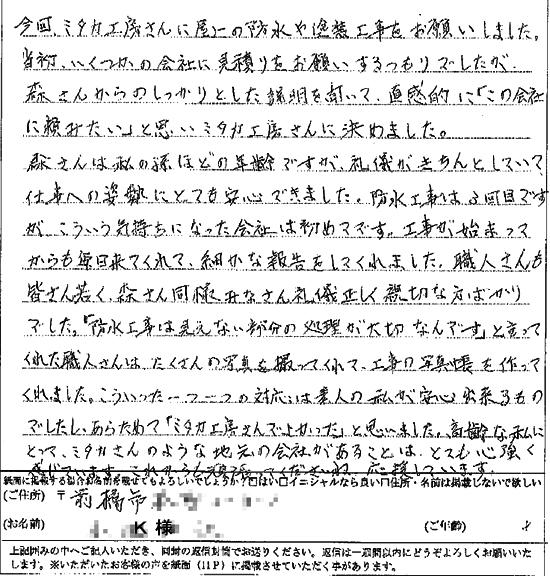 今回、ミタカ工房さんに屋上の防水や塗装工事をお願いしました。
当初、いくつかの会社に見積りをお願いするつもりでしたが、
森さんからのしっかりとした説明を聞いて、直感的に「この会社
に頼みたい」と思いミタカ工房さんに決めました。
森さんは私の孫ほどの年齢ですが、礼儀がきちんとしていて
仕事への姿勢にとても安心できました。防水工事は3回目です
が、こういう気持ちになった会社は初めてです。工事が始まって
からも毎回来てくれて、細かな報告をしてくれました。職人さんも
皆さん若く、森さん同様みなさん礼儀正しく親切な方ばかり
でした。「防水工事は見えない部分の処理が大切なんです」と言って
くれた職人さんはたくさんの写真を撮ってくれて、工事の写真帳を作って
くれました。こういった一つ一つの対応は素人の私が安心出来るもの
でしたし、あらためて「ミタカ工房さんでよかった」と思いました。高齢な私に
とって、ミタカさんのような地元の会社があることは、とても心強く
感じています。これからも頑張ってくださいね。応援しています。
紙面に掲載する場合お名前を載せてもよろしいでしょうか?□はい□イニシャルなら良い□住所・名前は掲載しないで欲しい
(ご住所) 〒 前橋市
(お名前) K 様 (ご年齢) 才
上記囲みの中へご記入いただき、同封の返信封筒でお送りください。返信は一週間以内にどうぞよろしくお願いいた
します。※いただいたお客様の声を紙面(HP)に掲載させていただく事があります。